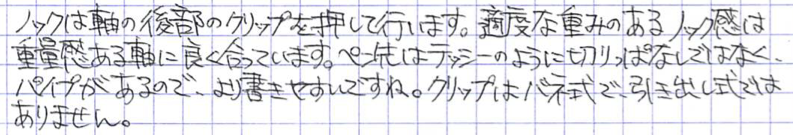 ノックは軸の後部のクリップを押して行います。適度な重みのあるノック感は
重量感ある軸に良く合っています。ペン先はテッシーのように切りっぱなしではなく、
パイプがあるので、より書きやすいですね。クリップはバネ式で、引き出し式では
ありません。